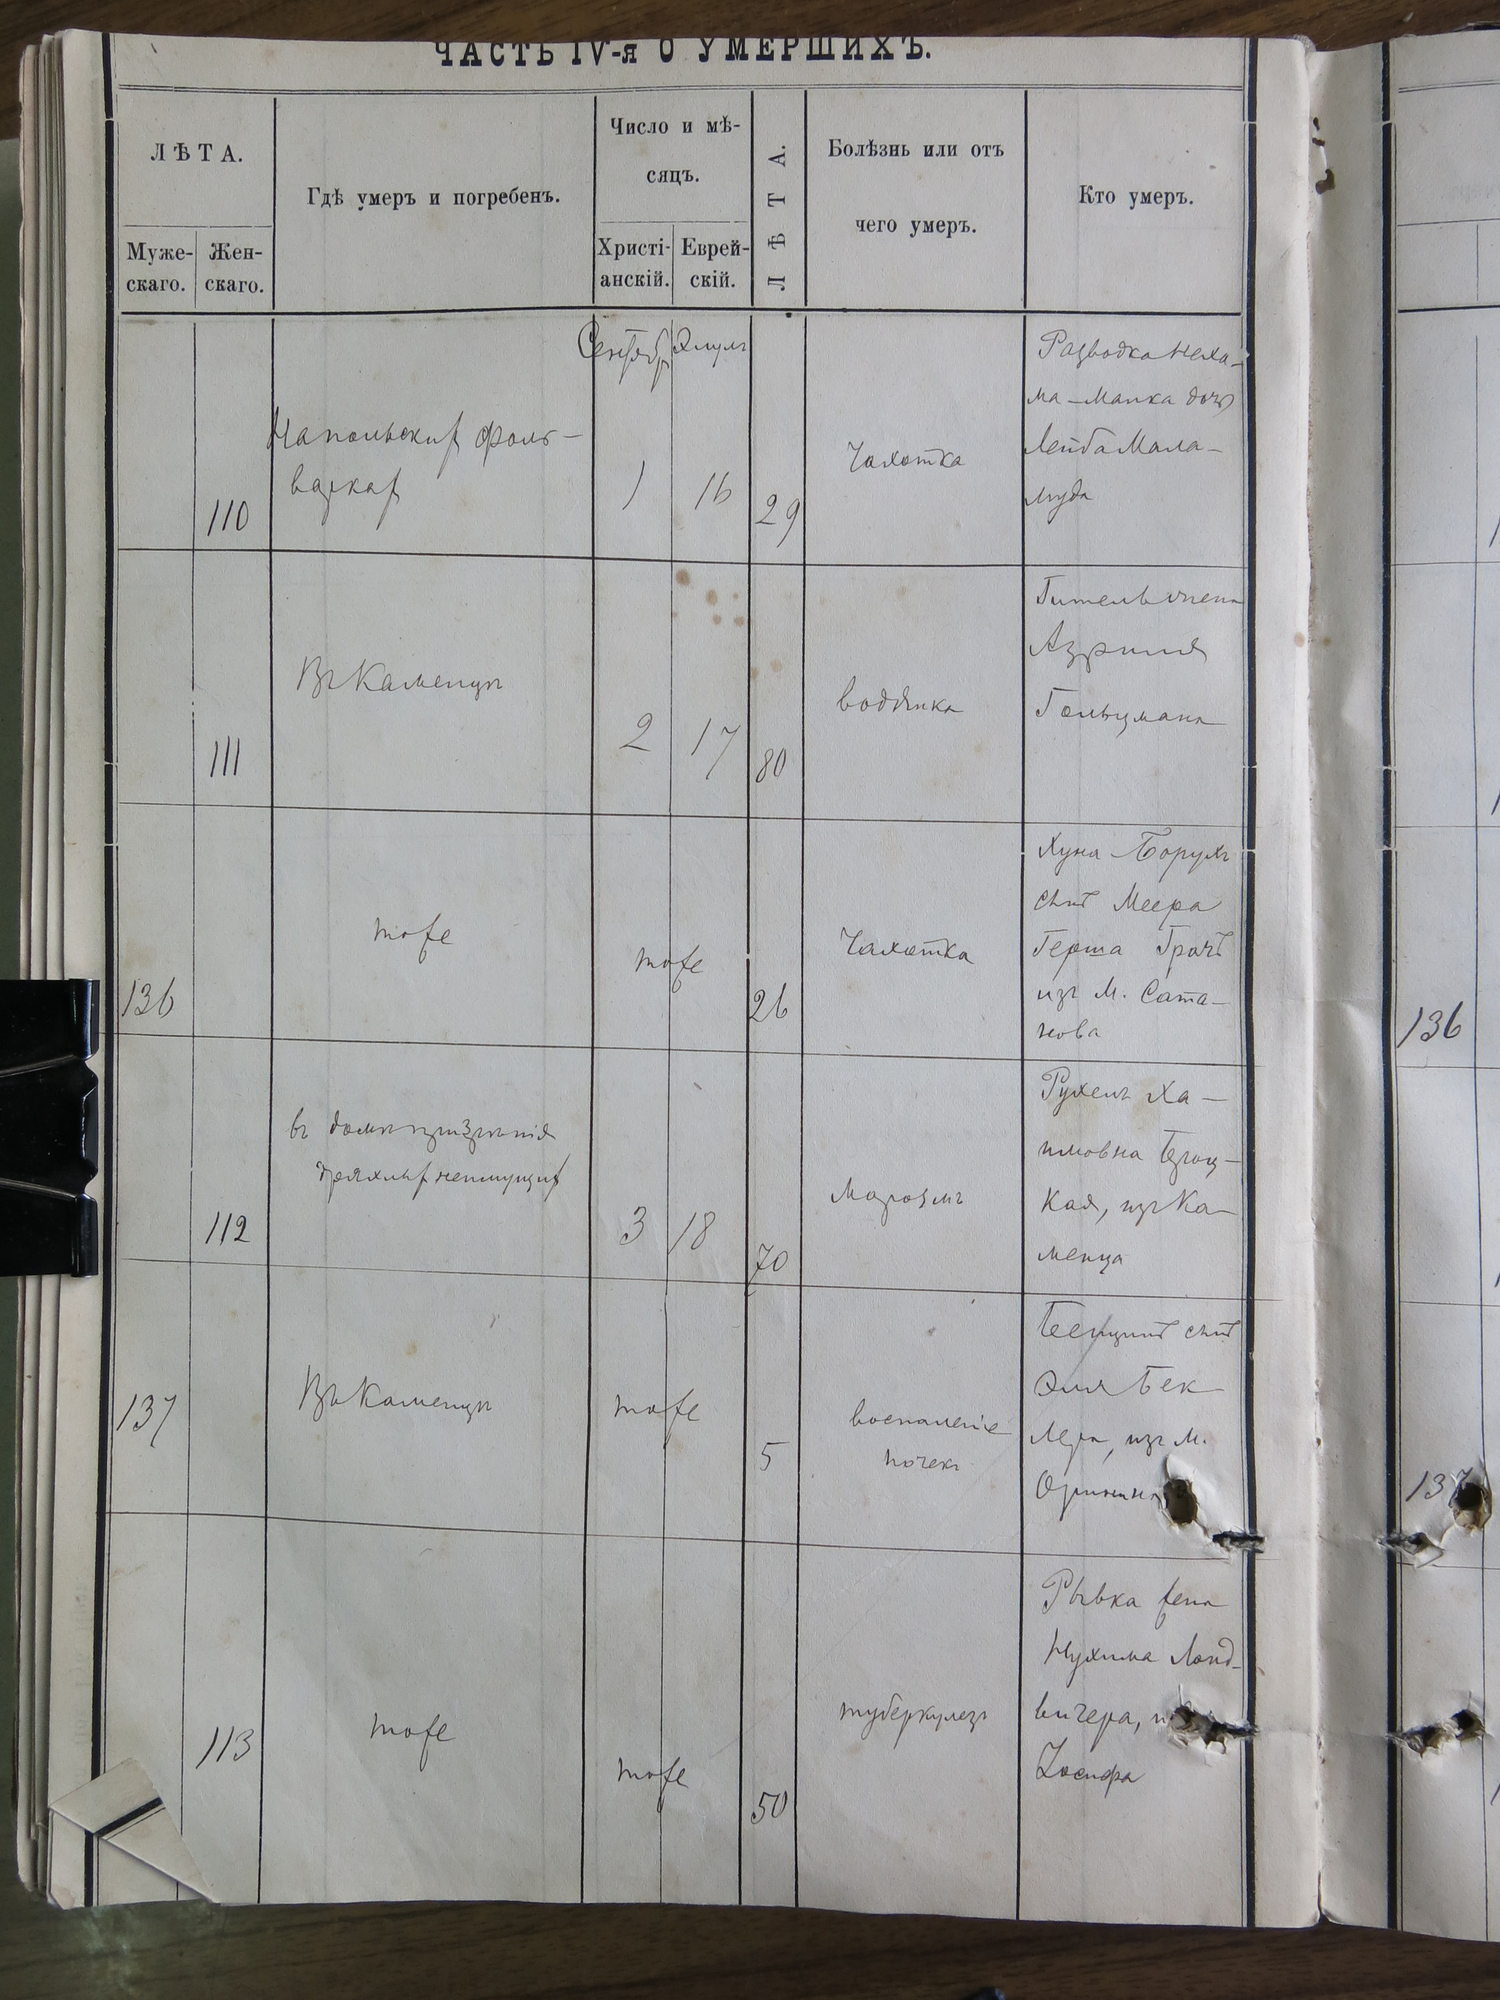 ЧАСТЬ IV-я О УМЕРШИХЪ.
ЛѢТА.
Муже-
скаго.
Жен-
скаго.
Гдѣ умеръ и погребенъ.
Число и мѣ-
сяцъ.
Христі-
анскій.
Еврей-
скій.
ЛѢТА.
Болѣзнь или отъ
чего умеръ.
Кто умеръ.
Сентябр Элулъ
110
фоль-
варках
1
16
29
Чахотка
Разводка Неха-
ма-Малка дочь
Лейба Мала-
муда
111
Въ Каменцѣ
2
17
80
водянка
Гитель жена
Азриля
Гольцмана
136
тоже
тоже
26
Чахотка
Хуна Борухъ
сынъ Меера
Герша Грачъ
изъ м. Сата-
нова
136
112
въ домѣ призрѣнія
дряхлых неимущих
3
18
70
маразмъ
Рухель Ха-
имовна
кая, изъ Ка-
менца
137
Въ Каменцѣ
тоже
5
воспаленіе
почекъ
сынъ
Эля Бек-
лера, изъ м.
Оринина
137
113
тоже
тоже
50
туберкулезъ
Рывка жена
Нухима Ланд-
вигера,